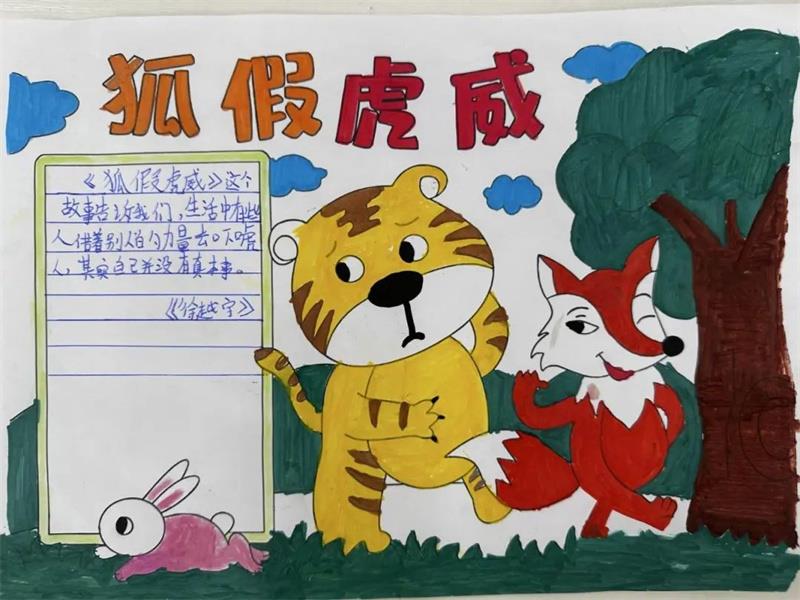 狐假虎威
《狐假虎威》这个
故事告诉我们,生活中有些
人借着别人的力量去吓唬
人,其实自己并没有真本事。
《徐越宁》